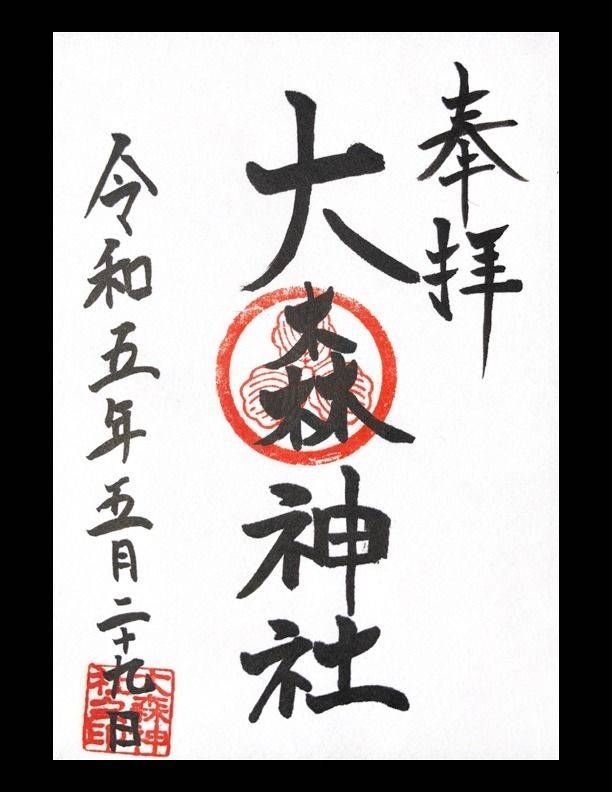 奉拝
大森神社
令和五年五月二十九日
大森神
社之印